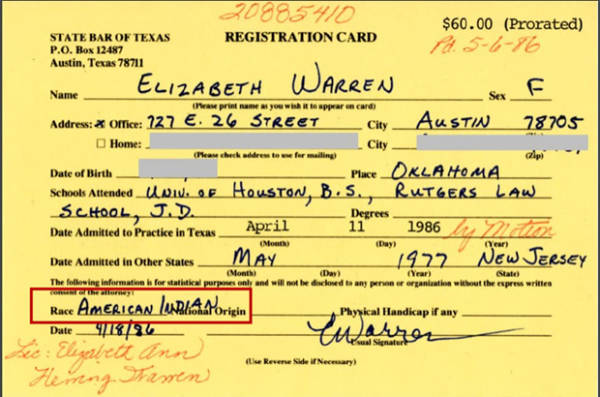 20885410
$60.00 (Prorated)
STATE BAR OF TEXAS
P.O. Box 12487
Austin, Texas 78711
REGISTRATION CARD
Pd. 5-6-86
Name ELIZABETH WARREN Sex F
(Please print name as you wish it to appear on card)
Address: x Office: 727 E. 26 STREET City AUSTIN 78705
(Zip)
Home: City
(Please check address to use for mailing) (Zip)
Date of Birth Place OKLAHOMA
Schools Attended UNIV. OF HOUSTON, B.S., RUTGERS LAW
SCHOOL, J.D. Degrees
Date Admitted to Practice in Texas April 11 1986 by Motion
(Month) (Day) (Year)
Date Admitted in Other States MAY 1977 NEW JERSEY
(Month) (Day) (Year) (State)
The following information is for statistical purposes only and will not be disclosed to any person or organization without the express written
consent of the attorney:
Race AMERICAN INDIAN National Origin Physical Handicap if any
Date 4/18/86 EWarren
Usual Signature
Lic: Elizabeth Ann
(Use Reverse Side if Necessary)